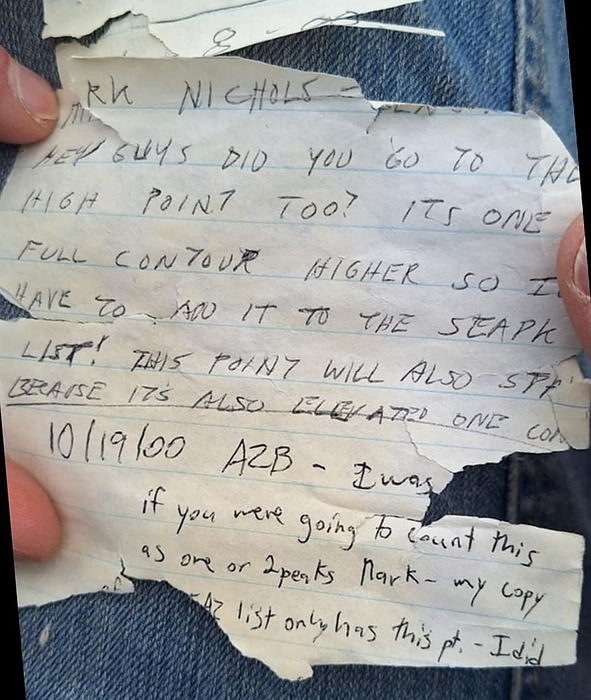 RK NICHOLS —
HEY GUYS DID YOU GO TO THE
HIGH POINT TOO? ITS ONE
FULL CONTOUR HIGHER SO I
HAVE TO ADD IT TO THE SEAPK
LIST! THIS POINT WILL ALSO
BECAUSE IT'S ALSO ELEVATED ONE CON
10/19/00 AZB - I was
if you were going to count this
as one or 2peaks Mark - my copy
AZ list only has this pt. - I did